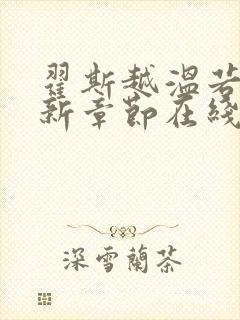 翟斯越温若
新章节在线
深雪蘭茶